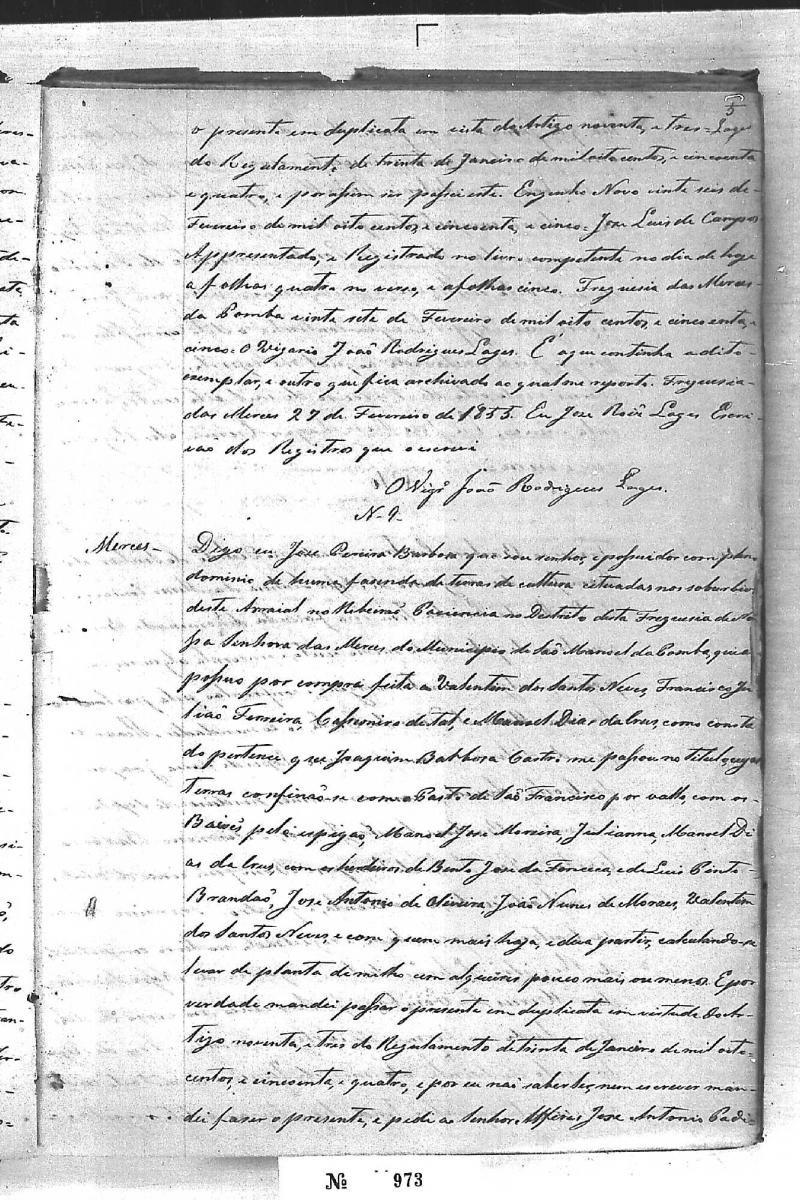 5
o presente em duplicata em vista do Artigo noventa, e tres = Lages
do Regulamento de trinta de Janeiro de mil oito centos, e cincoenta
e quatro, e por assim ser passei este. Engenho Novo vinte seis de
Fevereiro de mil oito centos, e cincoenta, e cinco = Jose Luis de Campos
Appresentado, e Registrado no livro competente no dia de hoje
a folhas quatro no verso, e a folhas cinco. Freguesia das Merces
da Pomba vinte sete de Fevereiro de mil oito centos, e cincoenta, e
cinco = O Vigario Joaõ Rodrigues Lages. E' o que continha a dito
exemplar, e outro que fica archivado ao qual me reporto. Freguesia
das Merces 27 de Fevereiro de 1855. Eu Jose Lages Escri-
vaõ dos Registros que o escrevi
O Vigrº Joaõ Rodrigues Lages.
N. 9.
Merces -
Digo eu Jose Pereira Barbosa que sou senhor, e possuidor com pleno
dominio de huma fasenda de terras de cultura cituadas nos soburbios
deste Arraial no Ribeiraõ Paciencia no Destrito desta Freguesia de No-
ssa Senhora das Merces do Municipio de Saõ Manoel da Pomba, que a
possuo por compra feita a Valentim dos Santos Neves, Francisco Ju-
liaõ Ferreira, Casemiro de tal, e Manoel Dias da Crus, como consta
do pertence que Joaquim Barbosa Castro me passou no titulo cujas
terras confinaõ-se com o Pasto de Saõ Francisco por vallo, com os
pelo espigaõ, Manoel Jose Moreira, Julianna, Manoel Di-
as da Crus, com os herdeiros de Bento Jose da Fonceca, e de Luis Pinto
Brandaõ, Jose Antonio de Oliveira, Joaõ Nunes de Moraes, Valentim
dos Santos Neves, e com quem mais haja, e deva partir, calculando-se
levar de planta de milho cem alqueires pouco mais ou menos. E por
verdade mandei passar o presente em duplicata em virtude do Ar-
tigo noventa, e tres do Regulamento de trinta de Janeiro de mil oito
centos, e cincoenta, e quatro, e por eu naõ saber ler, nem escrever man-
dei faser o presente, e pedi ao Senhor Alferes Jose Antonio Padi-
Nº 973